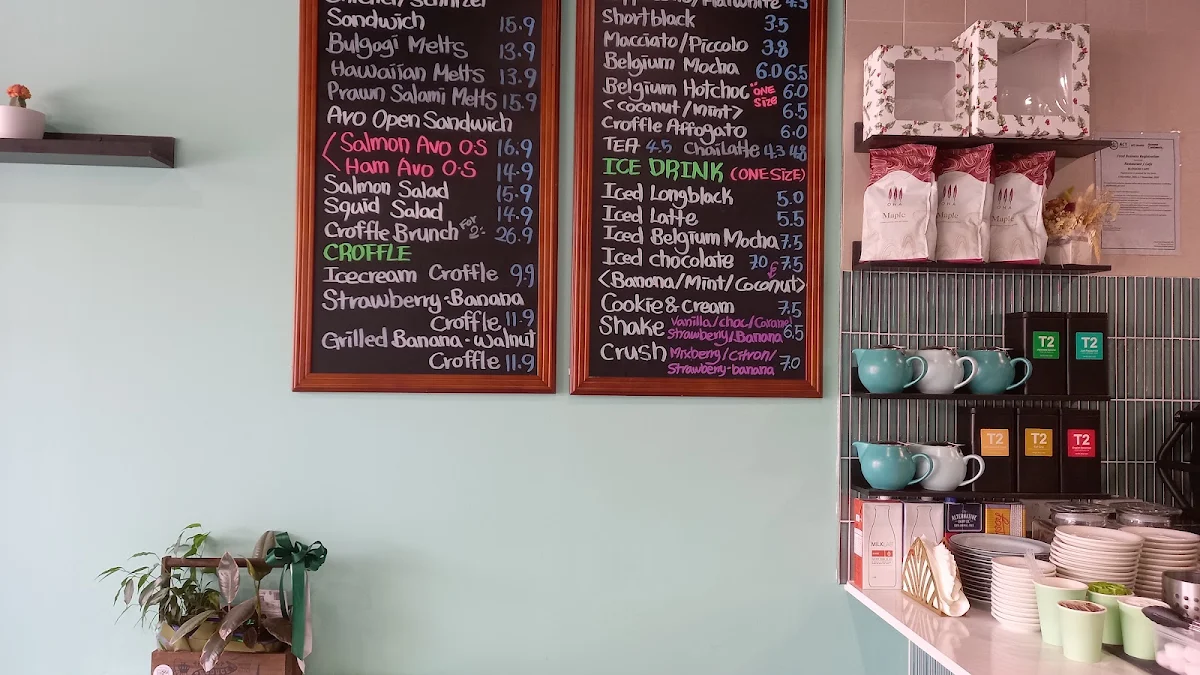 Chicken Schnitzel
Sandwich 15.9
Bulgogi Melts 13.9
Hawaiian Melts 13.9
Prawn Salami Melts 15.9
Avo Open Sandwich
Salmon Avo O·S 16.9
Ham Avo O·S 14.9
Salmon Salad 15.9
Squid Salad 14.9
Croffle Brunch For 2: 26.9
CROFFLE
Icecream Croffle 9.9
Strawberry·Banana
Croffle 11.9
Grilled Banana·Walnut
Croffle 11.9
Shortblack 3.5
Macciato/Piccolo 3.8
Belgium Mocha 6.0 6.5
Belgium Hotchoc "ONE SIZE 6.0
<coconut/mint> 6.5
Croffle Affogato 6.0
TEA 4.5 Chai Latte 4.3 4.8
ICE DRINK (ONE SIZE)
Iced Longblack 5.0
Iced Latte 5.5
Iced Belgium Mocha 7.5
Iced chocolate 7.0 7.5
<Banana/Mint/Coconut>
Cookie & Cream 7.5
Shake Vanilla/choc/Caramel
Strawberry/Banana 6.5
Crush Mixberry/Citron/
Strawberry-banana 7.0
ONA
Maple
ONA
Maple
ONA
Maple
T2
T2
T2
T2
T2
MILKLAB
ALTERNATIVE